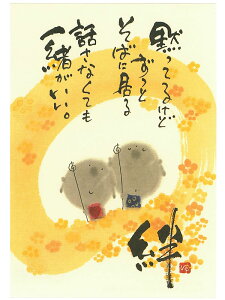 黙ってるけど
ずっと
そばに居る
話さなくても
一緒がいい。
絆